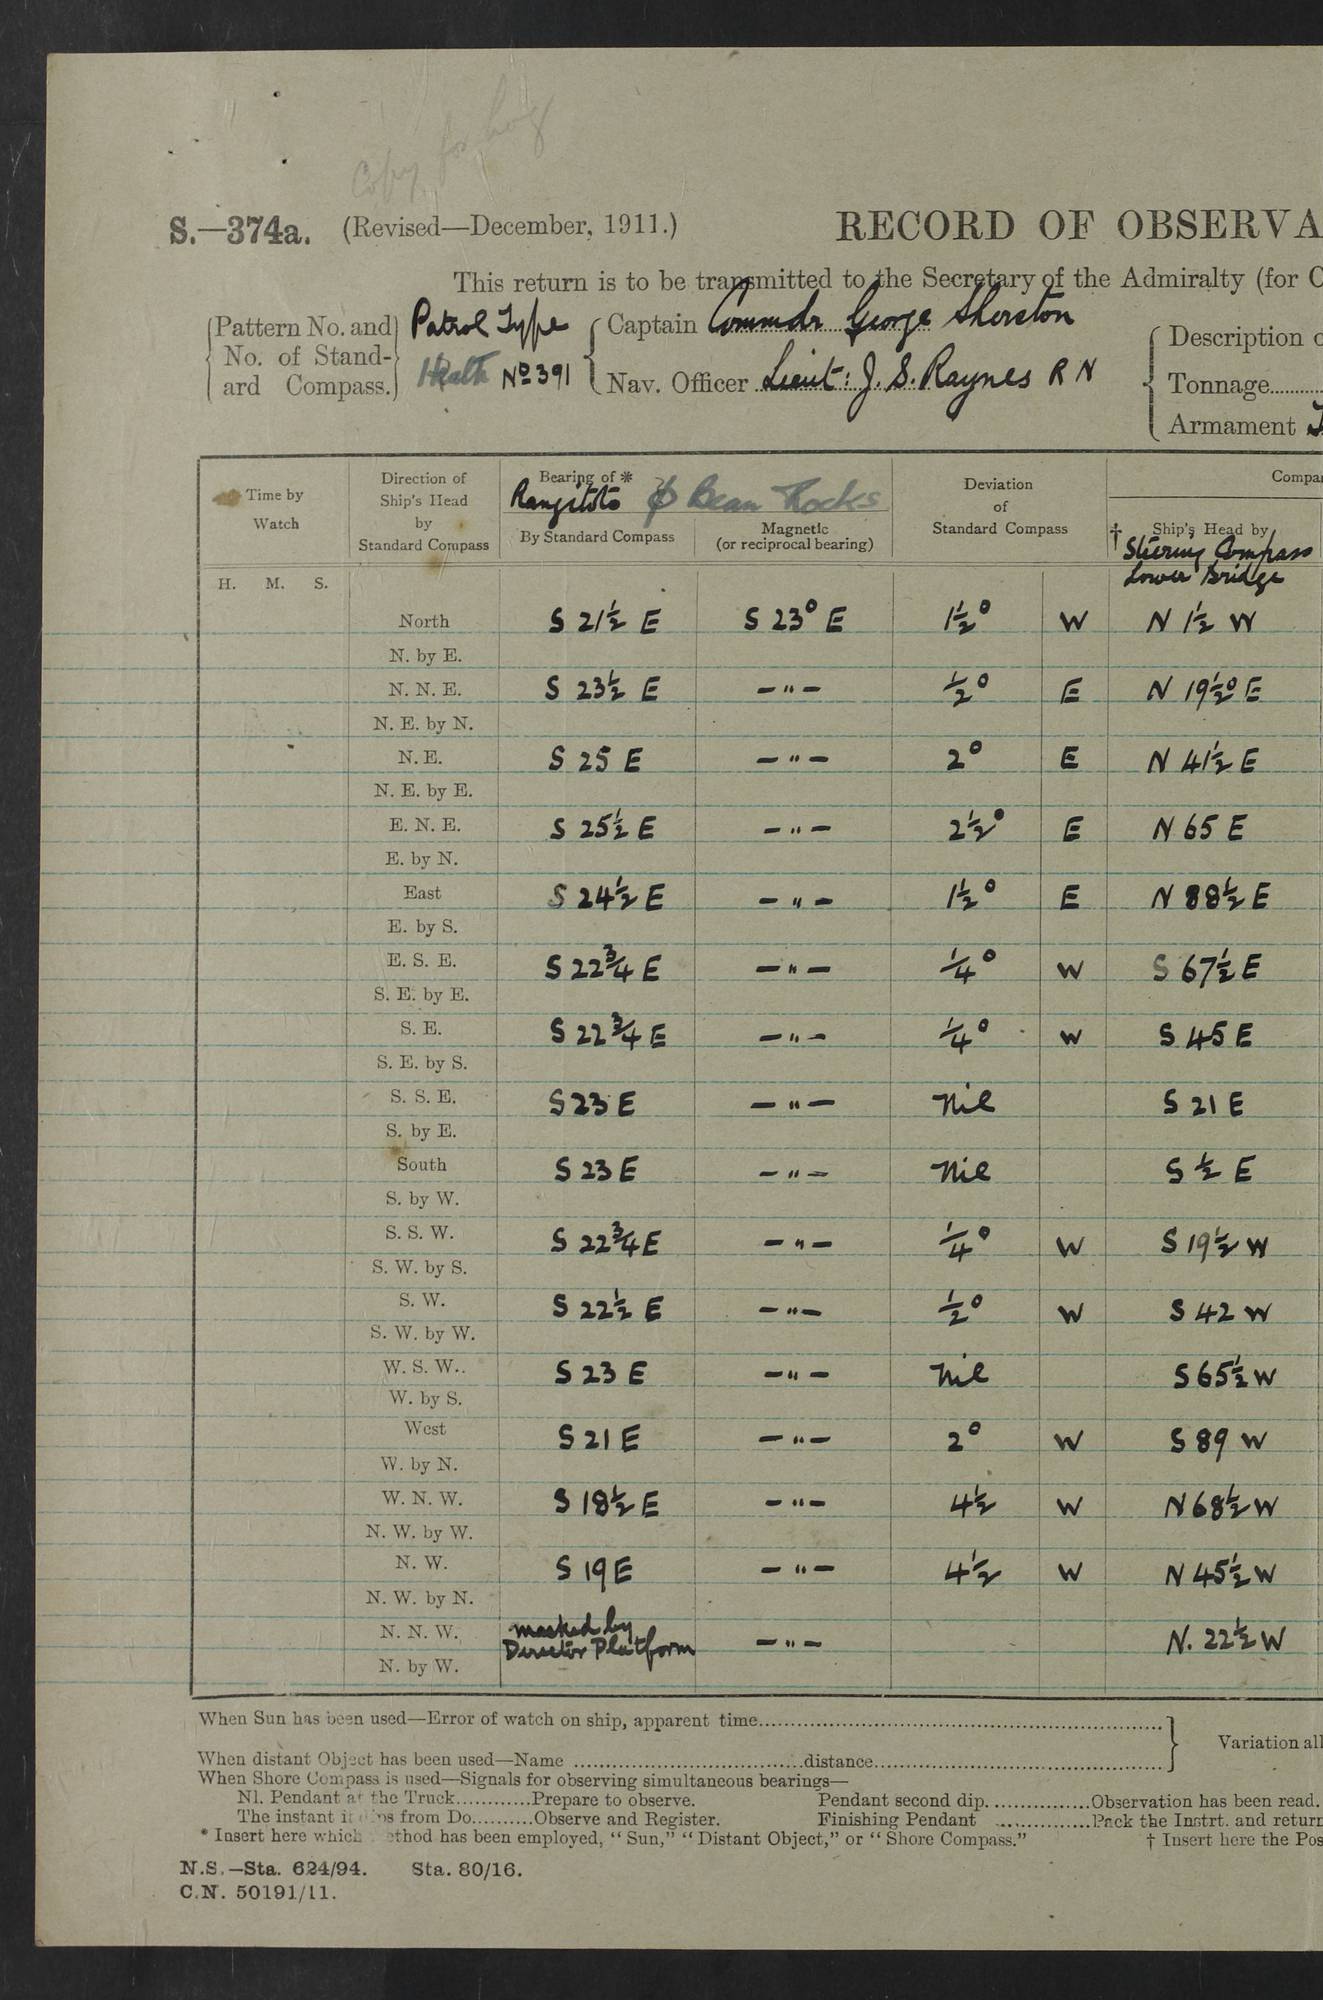 Copy for Log
S.—374a. (Revised—December, 1911.) RECORD OF OBSERVA
This return is to be transmitted to the Secretary of the Admiralty (for C
Pattern No. and No. of Standard Compass.
Patrol Type
Heath No 391
Captain Commdr George Sherston
Nav. Officer Lieut: J. S. Raynes R N
Description o
Tonnage
Armament
Time by Watch
Direction of Ship's Head by Standard Compass
Bearing of *
Rangitoto ϕ Bean Rocks
By Standard Compass
Magnetic (or reciprocal bearing)
Deviation of Standard Compass
Compa
† Ship's Head by
Steering Compass
Lower Bridge
H. M. S.
North S 21½ E S 23° E 1½° W N 1½ W
N. by E.
N. N. E. S 23½ E — " — ½° E N 19½° E
N. E. by N.
N. E. S 25 E — " — 2° E N 41½ E
N. E. by E.
E. N. E. S 25½ E — " — 2½° E N 65 E
E. by N.
East S 24½ E — " — 1½° E N 88½ E
E. by S.
E. S. E. S 22¾ E — " — ¼° W S 67½ E
S. E. by E.
S. E. S 22¾ E — " — ¼° W S 45 E
S. E. by S.
S. S. E. S 23 E — " — Nil S 21 E
S. by E.
South S 23 E — " — Nil S ½ E
S. by W.
S. S. W. S 22¾ E — " — ¼° W S 19½ W
S. W. by S.
S. W. S 22½ E — " — ½° W S 42 W
S. W. by W.
W. S. W. S 23 E — " — Nil S 65½ W
W. by S.
West S 21 E — " — 2° W S 89 W
W. by N.
W. N. W. S 18½ E — " — 4½ W N 68½ W
N. W. by W.
N. W. S 19 E — " — 4½ W N 45½ W
N. W. by N.
N. N. W. masked by Director Platform — " — N. 22½ W
N. by W.
When Sun has been used—Error of watch on ship, apparent time
Variation all
When distant Object has been used—Name distance
When Shore Compass is used—Signals for observing simultaneous bearings—
Nl. Pendant at the Truck............Prepare to observe. Pendant second dip...............Observation has been read.
The instant it dips from Do..........Observe and Register. Finishing Pendant ...............Pack the Instrt. and return
* Insert here which method has been employed, "Sun," "Distant Object," or "Shore Compass." † Insert here the Pos
N.S.—Sta. 624/94. Sta. 80/16.
C.N. 50191/11.